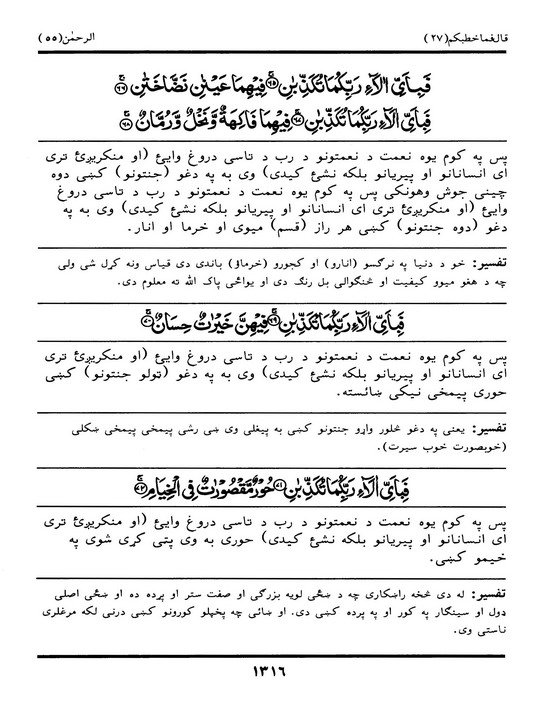 قال فما خطبكم (٢٧) الرحمٰن (٥٥)
فَبِاَيِّ اٰلَآءِ رَبِّكُمَا تُكَذِّبٰنِ ﴿٦٥﴾ فِيْهِمَا عَيْنٰنِ نَضَّاخَتٰنِ ﴿٦٦﴾
فَبِاَيِّ اٰلَآءِ رَبِّكُمَا تُكَذِّبٰنِ ﴿٦٧﴾ فِيْهِمَا فَاكِهَةٌ وَّنَخْلٌ وَّرُمَّانٌ ﴿٦٨﴾
پس په کوم يوه نعمت د نعمتونو د رب د تاسی دروغ وايئ (او منکريږئ تری
ای انسانانو او پيريانو بلکه نشئ کيدی) وی به په دغو (جنتونو) کښی دوه
چينی جوش وهونکی پس په کوم يوه نعمت د نعمتونو د رب د تاسی دروغ
وايئ (او منکريږئ تری ای انسانانو او پيريانو بلکه نشئ کيدی) وی به په
دغو (دوه جنتونو) کښی هر راز (قسم) ميوی او خرما او انار.
تفسير: خو د دنيا په نرګسو (انارو) او کجورو (خرماؤ) باندی دی قياس ونه کړل شی ولی
چه د هغو ميوو کيفيت او څنګوالی بل رنګ دی او يواځی پاک الله ته معلوم دی.
فَبِاَيِّ اٰلَآءِ رَبِّكُمَا تُكَذِّبٰنِ ﴿٦٩﴾ فِيْهِنَّ خَيْرٰتٌ حِسَانٌ ﴿٧٠﴾
پس په کوم يوه نعمت د نعمتونو د رب د تاسی دروغ وايئ (او منکريږئ تری
ای انسانانو او پيريانو بلکه نشئ کيدی) وی به په دغو (ټولو جنتونو) کښی
حوری پيمخی نيکی ښائسته.
تفسير: يعنی په دغو څلور واړو جنتونو کښی به پيغلی وی ښی رشی پيمخی پيمخی ښکلی
(خوبصورت خوب سيرت).
فَبِاَيِّ اٰلَآءِ رَبِّكُمَا تُكَذِّبٰنِ ﴿٧١﴾ حُوْرٌ مَّقْصُوْرٰتٌ فِي الْخِيَامِ ﴿٧٢﴾
پس په کوم يوه نعمت د نعمتونو د رب د تاسی دروغ وايئ (او منکريږئ تری
ای انسانانو او پيريانو بلکه نشئ کيدی) حوری به وی پتی کړی شوی په
خيمو کښی.
تفسير: له دی څخه راښکاری چه د ښځی لويه بزرګی او صفت ستر او پرده ده او ښځی اصلی
ډول او سينګار په کور او په پرده کښی دی. او ښائی چه پخپلو کورونو کښی درنی لکه مرغلری
ناستی وی.
١٣١٦